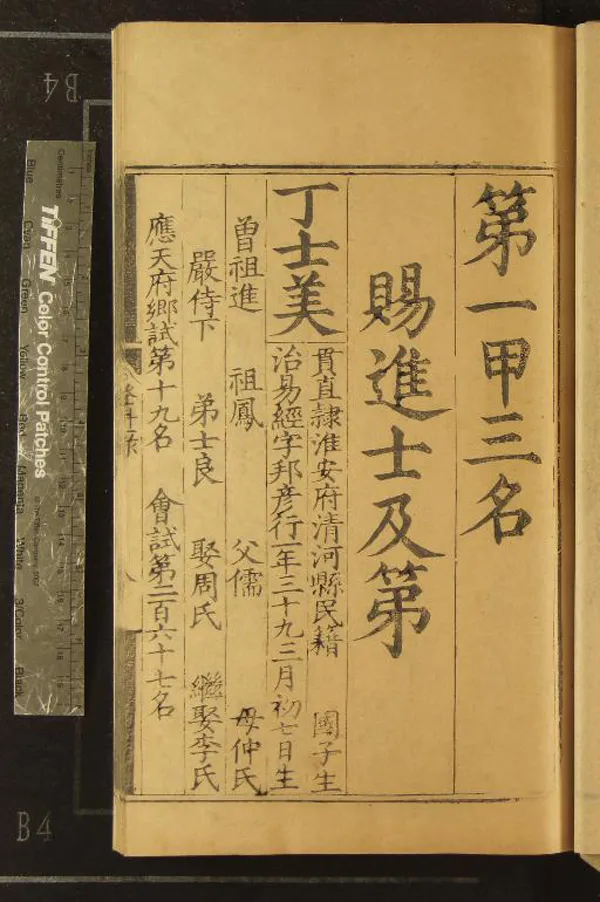 第一甲三名
賜進士及第
丁士美
貫直隸淮安府清河縣民籍 國子生
治易經字邦彥行一年三十九三月初七日生
曾祖進 祖鳳 父儒 母仲氏
嚴侍下 弟士良 娶周氏 繼娶李氏
應天府鄉試第十九名 會試第二百六十七名
B4
B4
TIFFEN Color Control Patches
Centimetres
Blue
Cyan
Green
Yellow
Red
Magenta
White
3/Color
Black